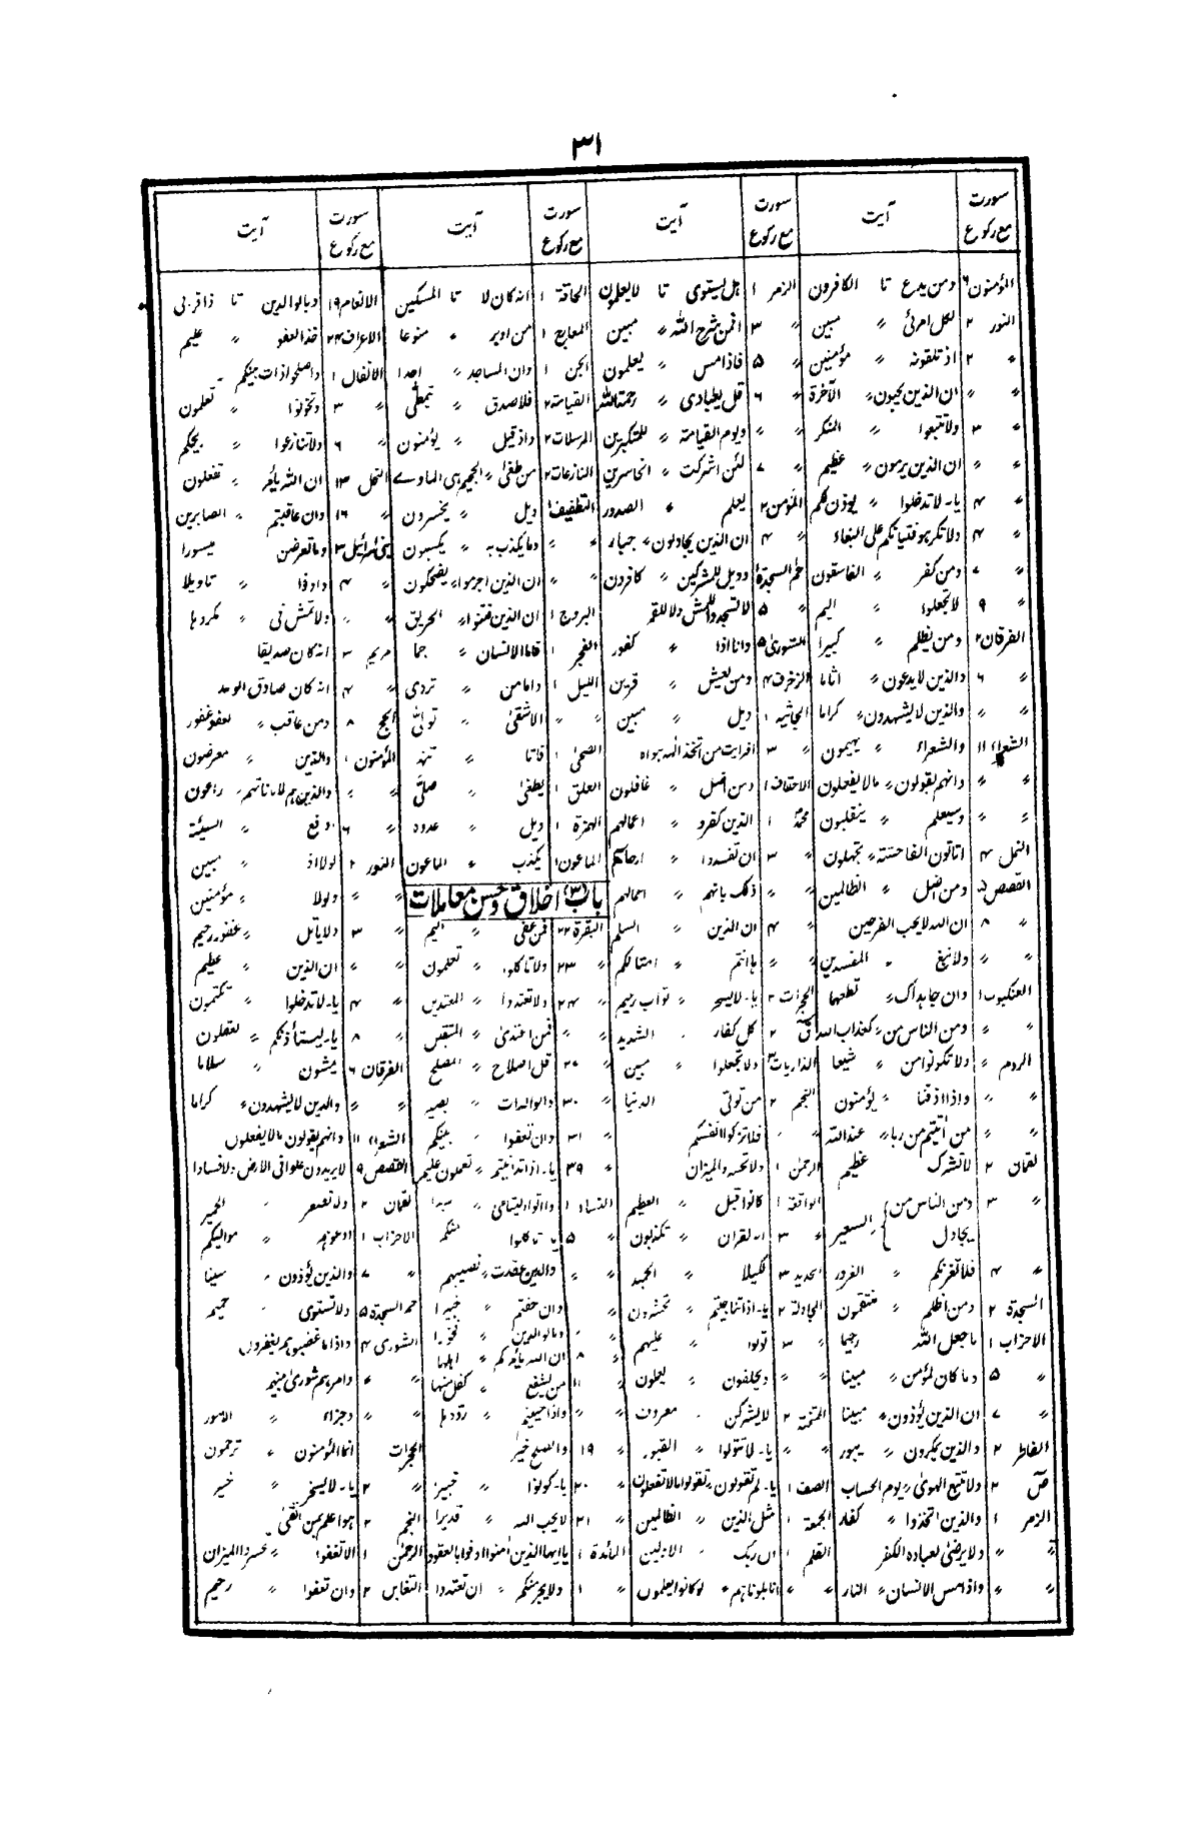 ۳۱
سورت مع رکوع آیت سورت مع رکوع آیت سورت مع رکوع آیت سورت مع رکوع آیت
المؤمنون ۶ ومن یدع تا الکافرون
النور ۲ لکل امرئ 〃 مبین
〃 ۲ اذ تلقونه 〃 مؤمنین
〃 〃 ان الذین یحبون 〃 الآخرة
〃 ۳ ولا تتبعوا 〃 المنکر
〃 〃 ان الذین یرمون 〃 عظیم
〃 ۴ یا۔ لا تدخلوا 〃 یوذن لکم
〃 ۴ ولا تکرهوا فتیاتکم علی البغاء
〃 ۷ ومن کفر 〃 الفاسقون
〃 ۹ لا تجعلوا 〃 الیم
الفرقان ۲ ومن یظلم 〃 کبیرا
〃 ۶ والذین لا یدعون 〃 اثاما
〃 〃 والذین لا یشهدون 〃 کراما
الشعراء ۱۱ والشعراء 〃 یهیمون
〃 〃 وانهم یقولون 〃 مالا یفعلون
〃 〃 وسیعلم 〃 ینقلبون
النمل ۴ اتاتون الفاحشة 〃 تجهلون
القصص ۵ ومن اضل 〃 الظالمین
〃 ۸ ان الله لا یحب الفرحین
〃 〃 ولا تبغ 〃 المفسدین
العنکبوت ۱ وان جاهداک 〃 تطعهما
〃 〃 ومن الناس من 〃 کعذاب الله
الروم 〃 ولا تکونوا من 〃 شیعا
〃 〃 واذا اذقنا 〃 یؤمنون
〃 〃 من اٰتیتم من ربا 〃 عند الله
لقمان ۲ لا تشرک 〃 عظیم
〃 ۳ ومن الناس من یجادل 〃 السعیر
〃 ۴ فلا تغرنکم 〃 الغرور
السجدة ۲ ومن اظلم 〃 منتقمون
الاحزاب ۱ ما جعل الله 〃 رحیما
〃 ۵ وما کان لمؤمن 〃 مبینا
〃 ۷ ان الذین یؤذون 〃 مبینا
الفاطر ۲ والذین یمکرون 〃 یبور
صٓ ۲ ولا تتبع الهویٰ 〃 یوم الحساب
الزمر ۱ والذین اتخذوا 〃 کفار
〃 〃 ولا یرضی لعباده الکفر
〃 〃 واذا مس الانسان 〃 النار
الزمر ۱ هل یستوی تا لا یعلمون
〃 ۳ افمن شرح الله 〃 مبین
〃 ۵ فاذا مس 〃 یعلمون
〃 ۶ قل یعبادی 〃 رحمة الله
〃 〃 ویوم القیامة 〃 للمتکبرین
〃 ۷ لئن اشرکت 〃 الخاسرین
المؤمن ۲ یعلم 〃 الصدور
〃 ۴ ان الذین یجادلون 〃 جبار
حٰم السجدة ۱ وویل للمشرکین 〃 کافرون
〃 ۵ لا تسجدوا للشمس ولا للقمر
الشوریٰ ۵ وانا اذا 〃 کفور
الزخرف ۴ ومن یعش 〃 قرین
الجاثیه ۱ ویل 〃 مبین
〃 ۳ افرایت من اتخذ الٰهه هواه
الاحقاف ۱ ومن اضل 〃 غافلون
محمدؐ ۱ الذین کفرو 〃 اعمالهم
〃 ۳ ان تفسدوا 〃 ارحامکم
〃 〃 ذلک بانهم 〃 اعمالهم
〃 ۴ ان الذین 〃 السلم
〃 〃 ها انتم 〃 امثالکم
الحجرات ۲ یا۔ لا یسخر 〃 تواب رحیم
قٓ ۲ کل کفار 〃 الشدید
الذاریات ۳ ولا تجعلوا 〃 مبین
النجم ۲ من تولی الدنیا
〃 〃 فلا تزکوا انفسکم
الرحمٰن ۱ ولا تخسروا المیزان
الواقعة ۱ کانوا قبل 〃 العظیم
〃 ۳ القران 〃 تکذبون
الحدید ۳ لکیلا 〃 الحمید
المجادلة ۲ یا۔ اذا تناجیتم 〃 تحشرون
〃 ۳ تولوا 〃 علیهم
〃 〃 ویحلفون 〃 یعملون
الممتحنة ۲ لا یشرکن 〃 معروف
〃 〃 یا۔ لا تتولوا 〃 القبور
الصف ۱ یا۔ لم تقولون 〃 تقولوا مالا تفعلون
الجمعة ۱ مثل الذین 〃 الظالمین
القلم ۱ ان ربک 〃 الاولین
〃 〃 انا بلوناهم 〃 لو کانوا یعلمون
الحاقة ۱ انه کان لا تا المسکین
المعارج ۱ من ادبر 〃 منوعا
الجن ۱ وان المساجد 〃 احدا
القیامة ۲ فلا صدق 〃 یتمطی
المرسلات ۲ واذ قیل 〃 یؤمنون
النازعات ۲ من طغیٰ 〃 الجحیم هی الماوے
التطفیف ۱ ویل 〃 یخسرون
〃 〃 وما یکذب به 〃 یکسبون
〃 〃 ان الذین اجرموا 〃 یضحکون
البروج ۱ ان الذین فتنوا 〃 الحریق
الفجر ۱ فاما الانسان 〃 جما
اللیل ۱ واما من 〃 تردی
〃 〃 الاشقیٰ 〃 تولیٰ
الضحیٰ ۱ فاما 〃 تنهر
العلق ۱ یطغیٰ 〃 صلیٰ
الهمزة ۱ ویل 〃 عدده
الماعون ۱ یکذب 〃 الماعون
باب (۳) اخلاق و حسن معاملات
البقرة ۲۲ فمن عفی 〃 الیم
〃 ۲۳ ولا تاکلوا 〃 تعلمون
〃 ۲۴ ولا تعتدوا 〃 المعتدین
〃 〃 فمن اعتدیٰ 〃 المتقین
〃 ۲۷ قل اصلاح 〃 المصلح
〃 ۳۰ والوالدات 〃 بصیر
〃 ۳۱ وان تعفوا 〃 بینکم
〃 ۳۹ یا۔ اذا تداینتم 〃 تعملون علیم
النساء ۱ واٰتوا الیتامیٰ
〃 ۵ یا۔ تاکلوا 〃 منکم
〃 〃 والذین عقدت 〃 نصیبهم
〃 〃 وان خفتم 〃 خبیرا
〃 〃 وبالوالدین 〃 فخورا
〃 ۸ ان الله یأمرکم 〃 اهلها
〃 ۱۱ من یشفع 〃 کفل منها
〃 〃 واذا حییتم 〃 ردوها
〃 ۱۹ والصلح خیر
〃 ۲۰ یا۔ کونوا 〃 خبیر
〃 ۲۱ لا یحب الله 〃 قدیرا
المائدة ۱ یا ایها الذین اٰمنوا اوفوا بالعقود
〃 ۱ ولا یجرمنکم 〃 ان تعتدوا
الانعام ۱۹ وبالوالدین تا ذا قربی
الاعراف ۲۴ خذ العفو 〃 علیم
الانفال ۱ واصلحوا ذات بینکم
〃 ۳ وتخونوا 〃 تعلمون
〃 ۶ ولا تنازعوا 〃 ریحکم
النحل ۱۳ ان الله یأمر 〃 تفعلون
〃 ۱۶ وان عاقبتم 〃 الصابرین
بنی اسرائیل ۳ واما تعرضن میسورا
〃 ۴ واوفوا 〃 تاویلا
〃 〃 ولا تمش فی 〃 مکروها
مریم ۳ انه کان صدیقا
〃 ۴ انه کان صادق الوعد
الحج ۸ ومن عاقب 〃 لعفو غفور
المؤمنون ۱ والذین 〃 معرضون
〃 〃 والذین هم لاماناتهم 〃 راعون
〃 ۶ ادفع 〃 السیئة
النور ۲ لولا اذ 〃 مبین
〃 〃 ولولا 〃 مؤمنین
〃 ۳ ولا یاتل 〃 غفور رحیم
〃 〃 ان الذین 〃 عظیم
〃 ۴ یا۔ لا تدخلوا 〃 تکتمون
〃 ۸ یا۔ لیستأذنکم 〃 تعقلون
الفرقان ۶ یمشون 〃 سلاما
〃 〃 والذین لا یشهدون 〃 کراما
الشعراء ۱۱ وانهم یقولون مالا یفعلون
القصص ۹ لا یریدون علوا فی الارض ولا فسادا
لقمان ۲ ولا تصعر 〃 الحمیر
الاحزاب ۱ ادعوهم 〃 موالیکم
〃 ۷ والذین یؤذون 〃 مبینا
حم السجدة ۵ ولا تستوی 〃 حمیم
الشوری ۴ واذا ما غضبوا هم یغفرون
〃 〃 وامرهم شوریٰ بینهم
〃 〃 وجزاء 〃 الامور
الحجرات انما المؤمنون 〃 ترحمون
〃 ۲ یا۔ لا یسخر 〃 خیر
النجم ۲ هو اعلم بمن اتقیٰ
الرحمٰن ۱ الا تطغوا 〃 تخسروا المیزان
التغابن ۲ وان تعفوا 〃 رحیم